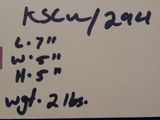 KSCW/2941
L. 7"
W. 5"
H. 5"
wgt. 2 lbs.